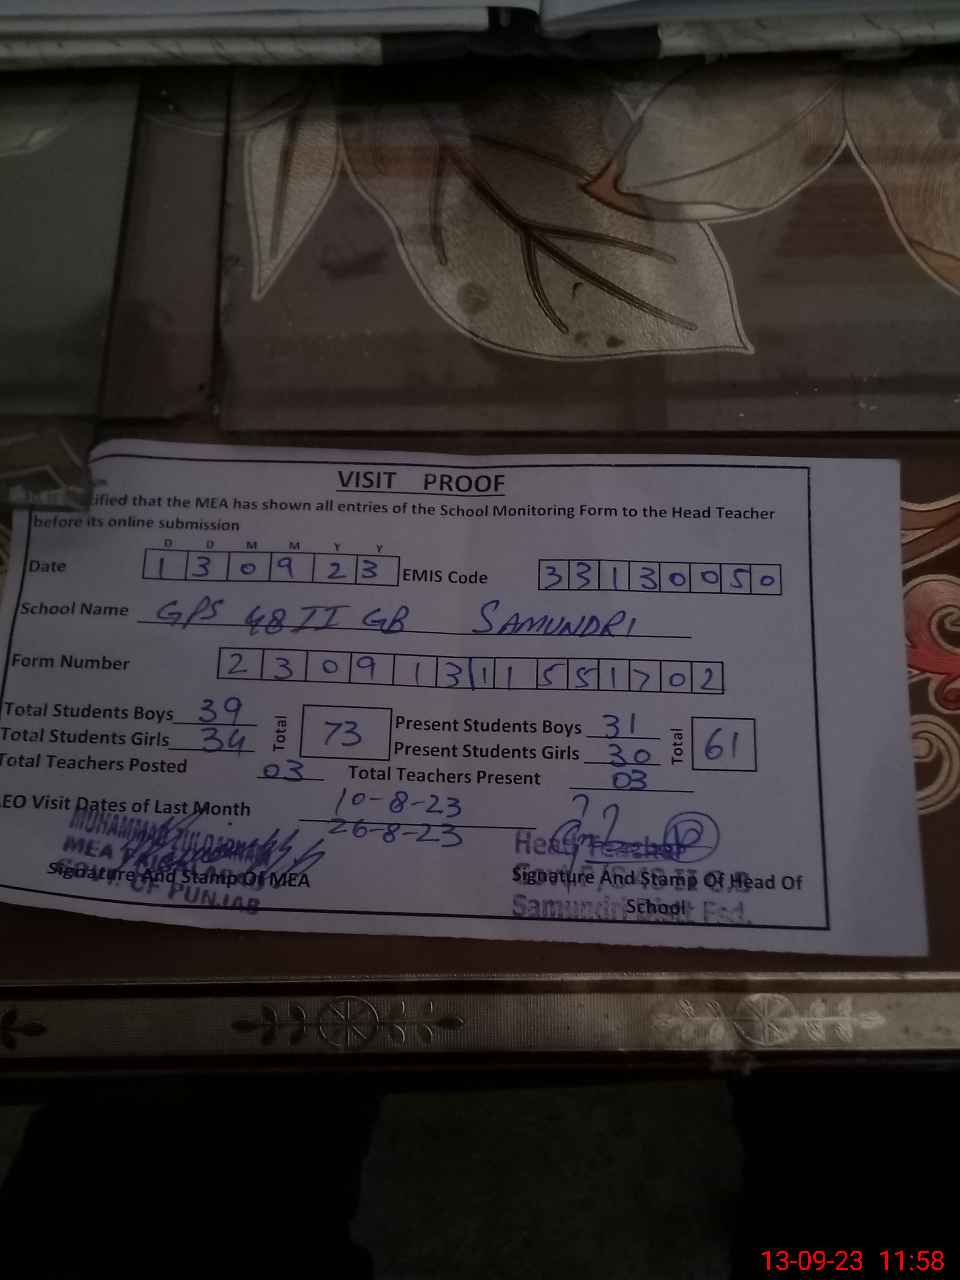 VISIT PROOF
ified that the MEA has shown all entries of the School Monitoring Form to the Head Teacher
before its online submission
D D M M Y Y
Date 1 3 0 9 2 3 EMIS Code 3 3 1 3 0 0 5 0
School Name GPS 48 II GB SAMUNDRI
Form Number 2 3 0 9 1 3 1 1 5 5 1 7 0 2
Total Students Boys 39 Total 73 Present Students Boys 31 Total 61
Total Students Girls 34 Present Students Girls 30
Total Teachers Posted 03 Total Teachers Present 03
EO Visit Dates of Last Month 10-8-23
26-8-23
MUHAMMAD
MEA
Head Teacher
Signature And Stamp Of MEA
Signature And Stamp Of Head Of
School
GOVT. OF PUNJAB
Samundri Distt Fsd.
13-09-23 11:58